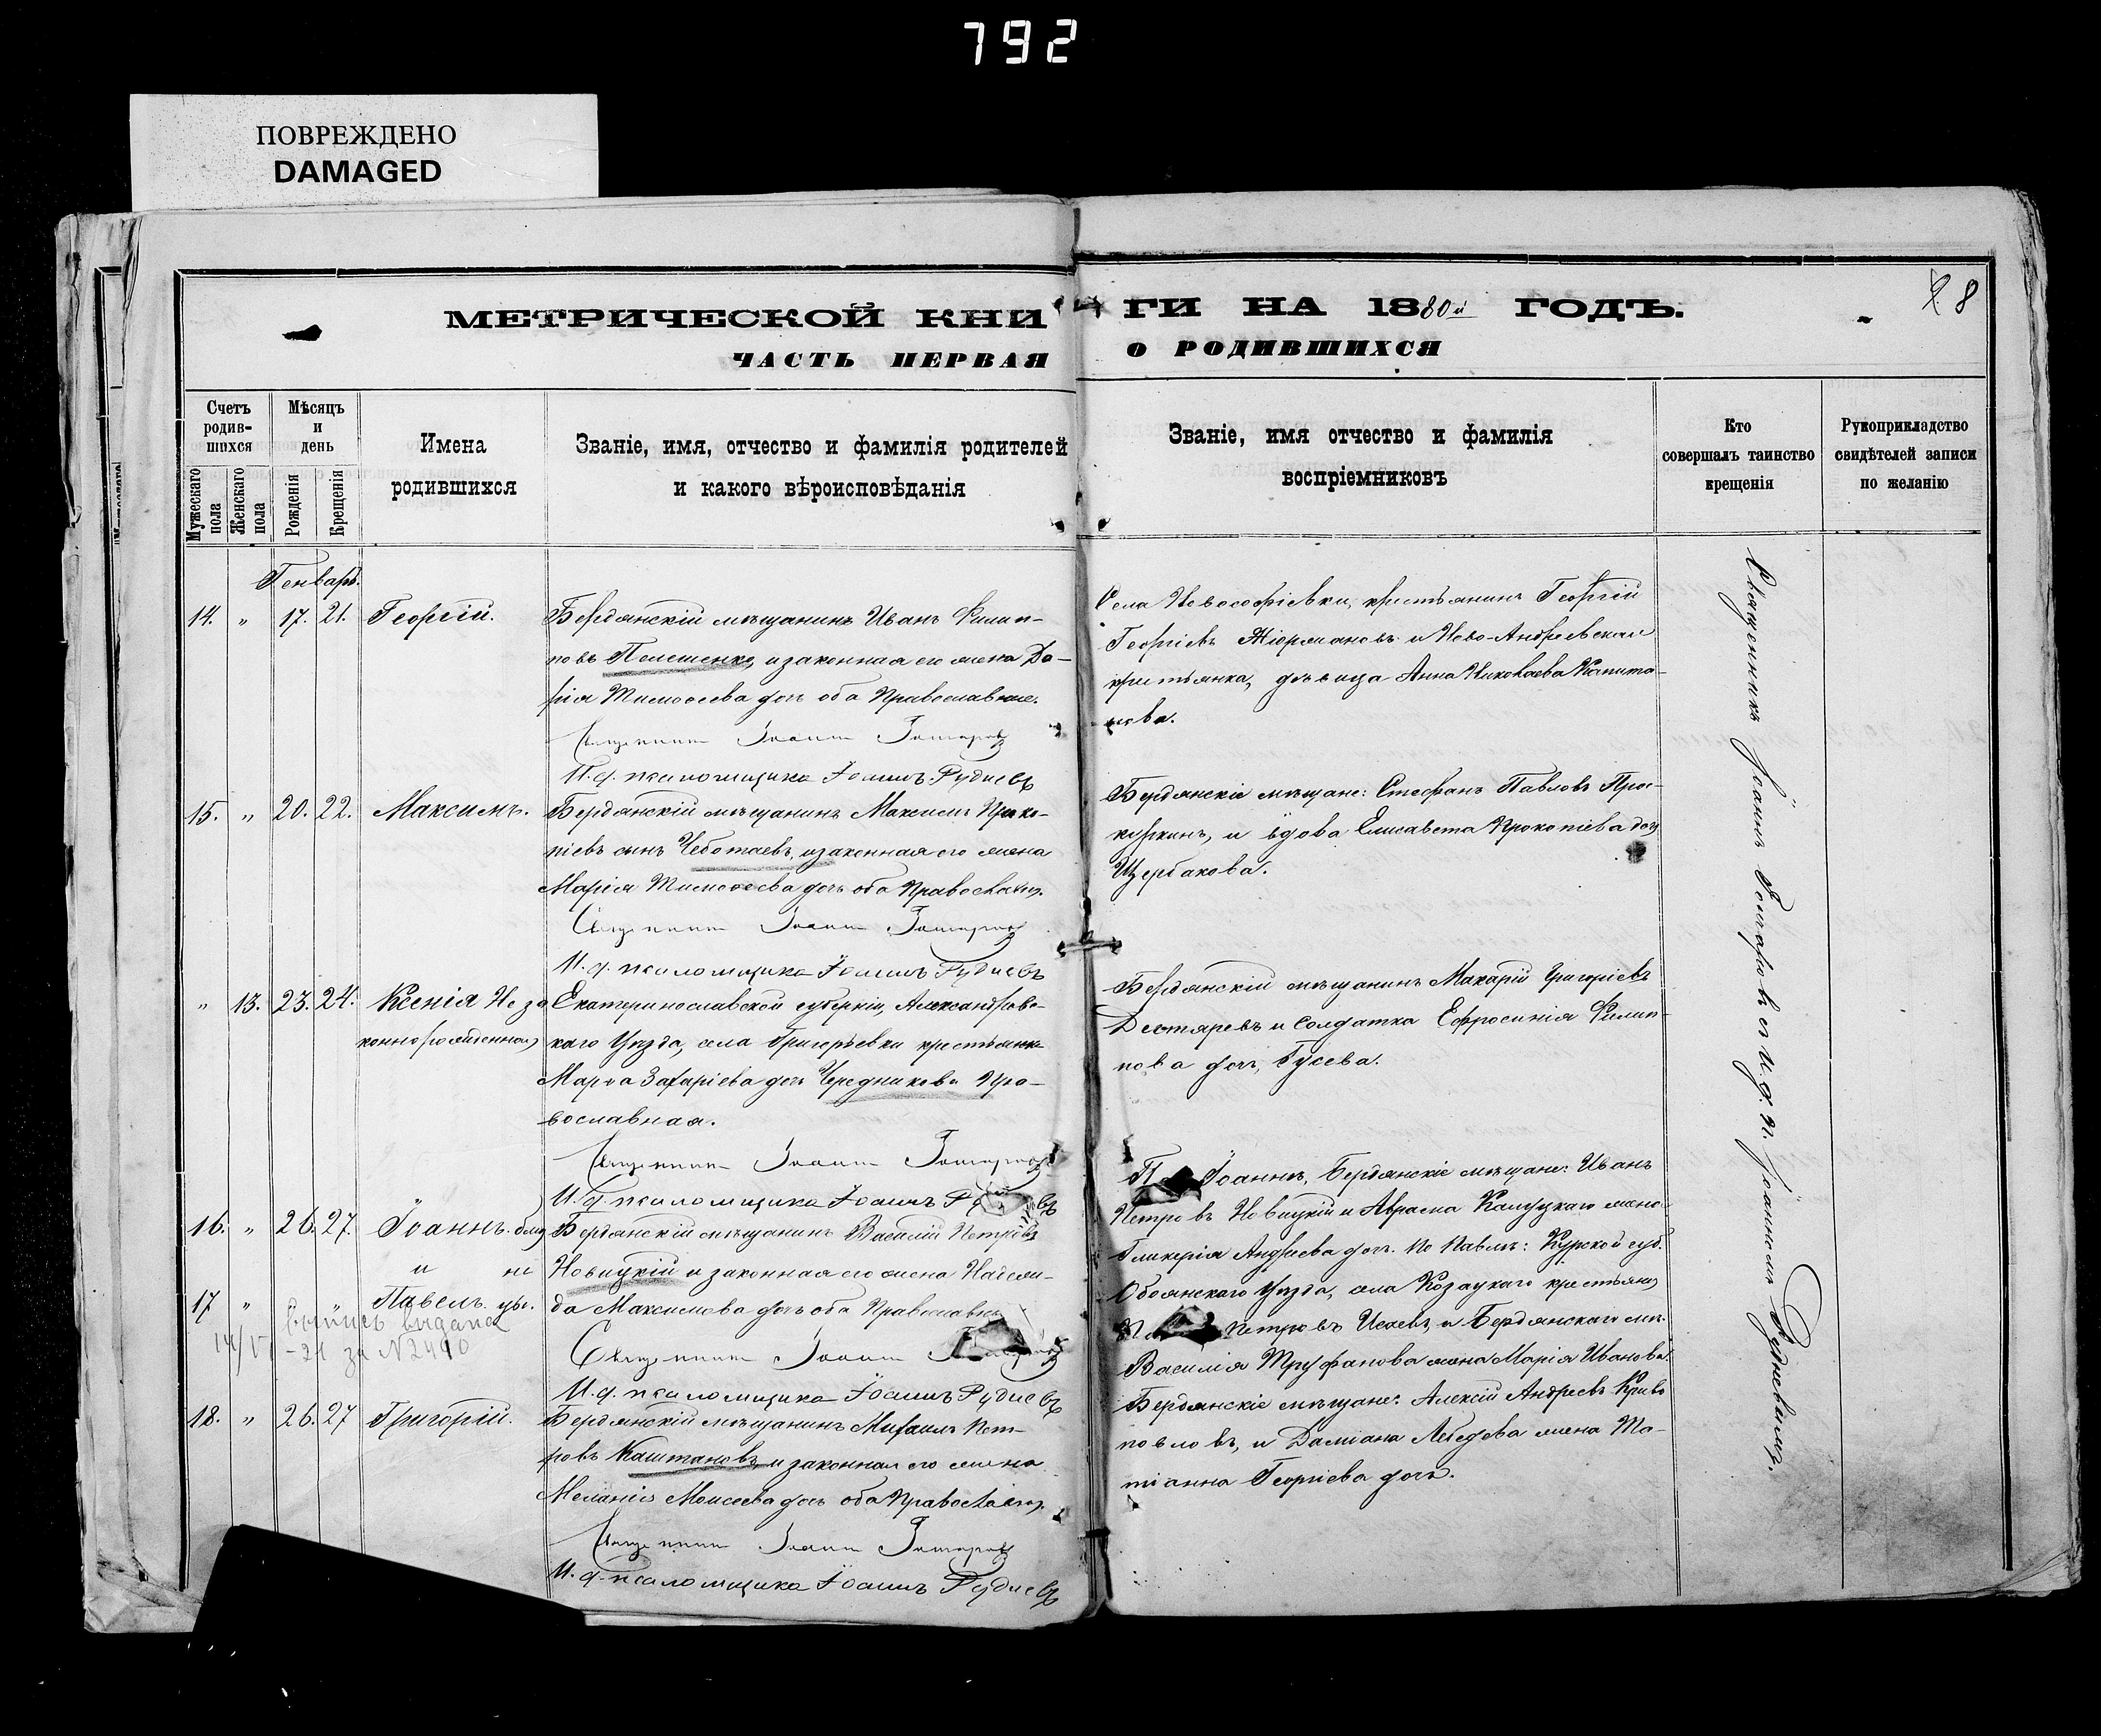 792
ПОВРЕЖДЕНО
DAMAGED
МЕТРИЧЕСКОЙ КНИГИ НА 1880й ГОДЪ.
8
ЧАСТЬ ПЕРВАЯ О РОДИВШИХСЯ
Счетъ родив-шихся
Мужескаго пола
Женскаго пола
Мѣсяцъ и день
Рожденія
Крещенія
Имена родившихся
Званіе, имя, отчество и фамилія родителей
и какого вѣроисповѣданія
Званіе, имя отчество и фамилія
воспріемниковъ
Кто
совершалъ таинство
крещенія
Рукоприкладство
свидѣтелей записи
по желанію
Генварь.
14. " 17. 21. Георгій.
Бердянскій мѣщанинъ Иванъ Филип-
повъ Пелешенко, и законная его жена Да-
рія Тимоѳеева дочь оба Православные.
Священникъ Іоаннъ Гончаровъ
И. д. псаломщика Іоаннъ Рудневъ
Села Новософіевки, крестьянинъ Георгій
Георгіевъ и Ново-Андреевская
крестьянка, дѣвица Анна Николаева Капита-
нова.
15. " 20. 22. Максимъ.
Бердянскій мѣщанинъ Максимъ Проко-
піевъ сынъ Чеботаевъ, и законная его жена
Марія Тимоѳеева дочь оба Православн.
Священникъ Іоаннъ Гончаровъ
И. д. псаломщика Іоаннъ Рудневъ
Бердянскіе мѣщане: Стефанъ Павловъ Прос-
куркинъ, и вдова Елисавета Прокопіева дочь
Щербакова.
" 13. 23. 24. Ксенія Неза
коннорожденная
Екатеринославской губерніи, Александровс-
каго Уѣзда, села Григорьевки крестьянка
Марѳа Захаріева дочь Чередникова Пра-
вославная.
Священникъ Іоаннъ Гончаровъ
И. д. псаломщика Іоаннъ Рудневъ
Бердянскій мѣщанинъ Макарій Григоріевъ
Дехтяревъ и Солдатка Ефросинія Филип-
пова дочь, Гусева.
16. " 26. 27. Іоаннъ. близ
и не
17 " " Павелъ. цы.
выпись выдана
за № 2490
Бердянскій мѣщанинъ Василій Петровъ
Новицкій и законная его жена Надеж-
да Максимова дочь оба Православн
Священникъ Іоаннъ
И. д. псаломщика Іоаннъ Рудневъ
Іоаннѣ, Бердянскіе мѣщане: Иванъ
Петровъ Новицкій и Аврама Калуцкаго жена
Гликерія Андреева дочь. По Павлѣ: Курской губ.
Обоянскаго Уѣзда, села Козацкаго крестьянъ
Петровъ и Бердянскаго мѣщ.
Василія Труфанова жена Марія Иванова.
18. " 26. 27 Григорій.
Бердянскій мѣщанинъ Михаилъ Пет-
ровъ Каштановъ и законная его жена
Меланія Моисеева дочь оба Православн.
Священникъ Іоаннъ Гончаровъ
И. д. псаломщика Іоаннъ Рудневъ
Бердянскіе мѣщане: Алексій Андреевъ Криво
повловъ, и Даміана Лебедева жена Та-
тіанна Георгіева дочь.
Священникъ Іоаннъ Гончаровъ съ И. д. п. Іоанномъ Рудневымъ.